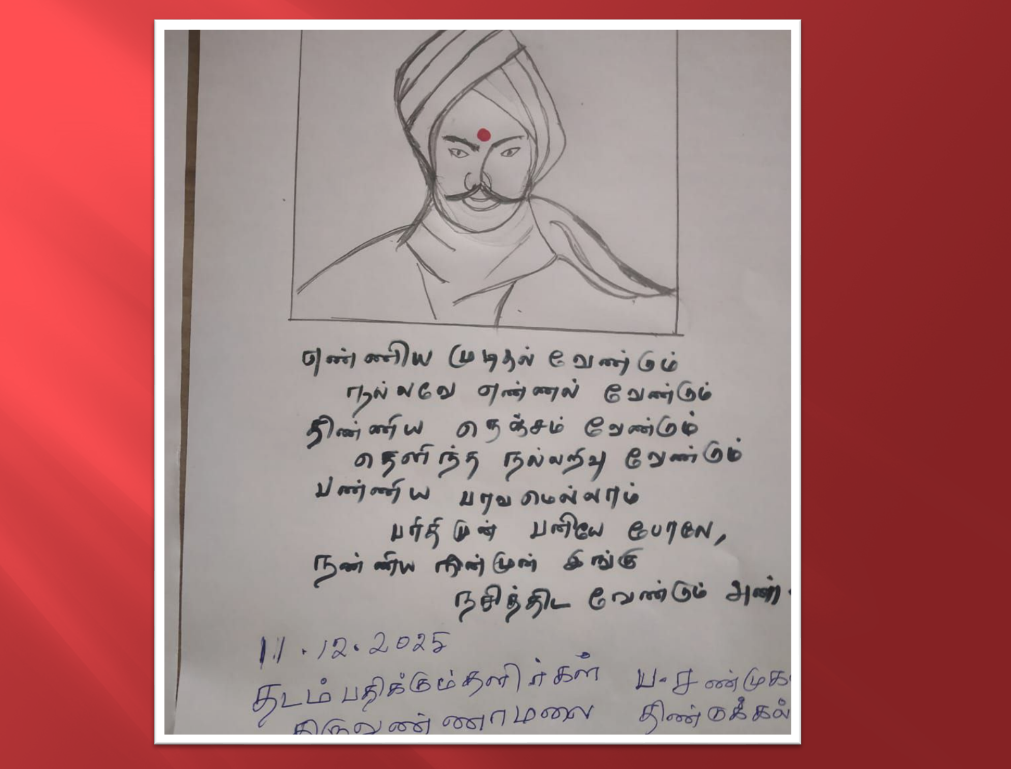 எண்ணிய முடிதல் வேண்டும்
நல்லவே எண்ணல் வேண்டும்
திண்ணிய நெஞ்சம் வேண்டும்
தெளிந்த நல்லறிவு வேண்டும்
பண்ணிய பாவமெல்லாம்
பரிதி முன் பனியே போலே,
நண்ணிய நின்முன் இங்கு
நசித்திட வேண்டும்
11.12.2025
தடம் பதிக்கும் தளிர்கள்
திருவண்ணாமலை
திண்டுக்கல்